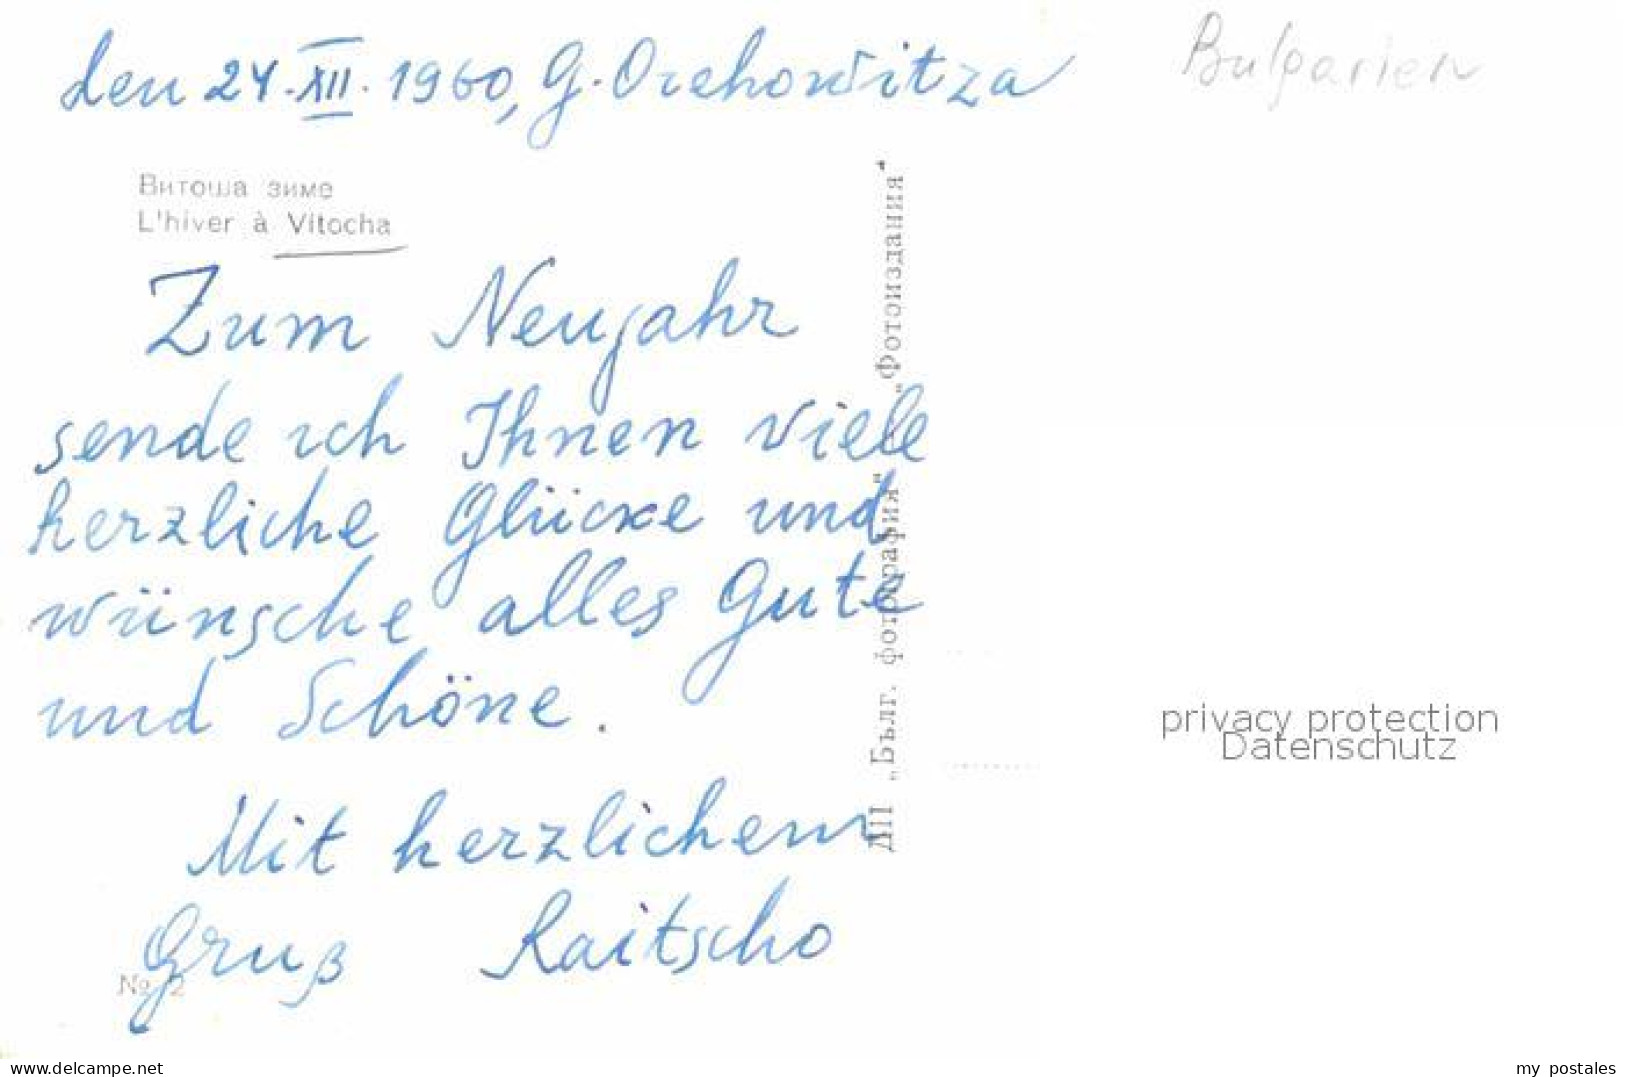 den 24.XII.1960, G. Orehowitza
Bulgarien
Витоша зиме
L'hiver à Vitocha
Zum Neujahr
sende ich Ihnen viele
herzliche Glücke und
wünsche alles Gute
und Schöne.
Mit herzlichem
Gruß Raitscho
№ 2
ДП „Бълг. фотография" „Фотоиздания"
privacy protection
Datenschutz
www.delcampe.net
my_postales